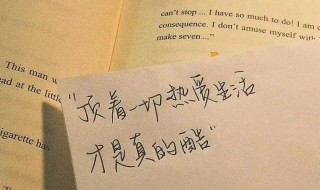 can't stop ... I have so much to do! I am o
consequence. I don't amuse myself with
make seven ..."
This man w
ead at the little
igarette has
"顶着一切热爱生活
才是真的酷"